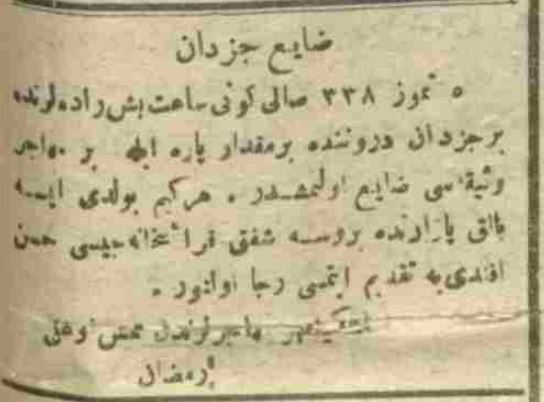 ضايع جزدان
٥ تموز ٣٣٨ صالى كونى ساعت بش راده لرنده
بر جزدان دروننده بر مقدار پاره ايله بر مهاجر
وثيقه سى ضايع اولمشدر . هر كيم بولدى ايسه
بالق پازارنده بروسه شفق قرائتخانه جيسى حسن
افندى يه تقديم ايتمسى رجا اولنور .
مهاجرلرندن اوغلى
رمضان